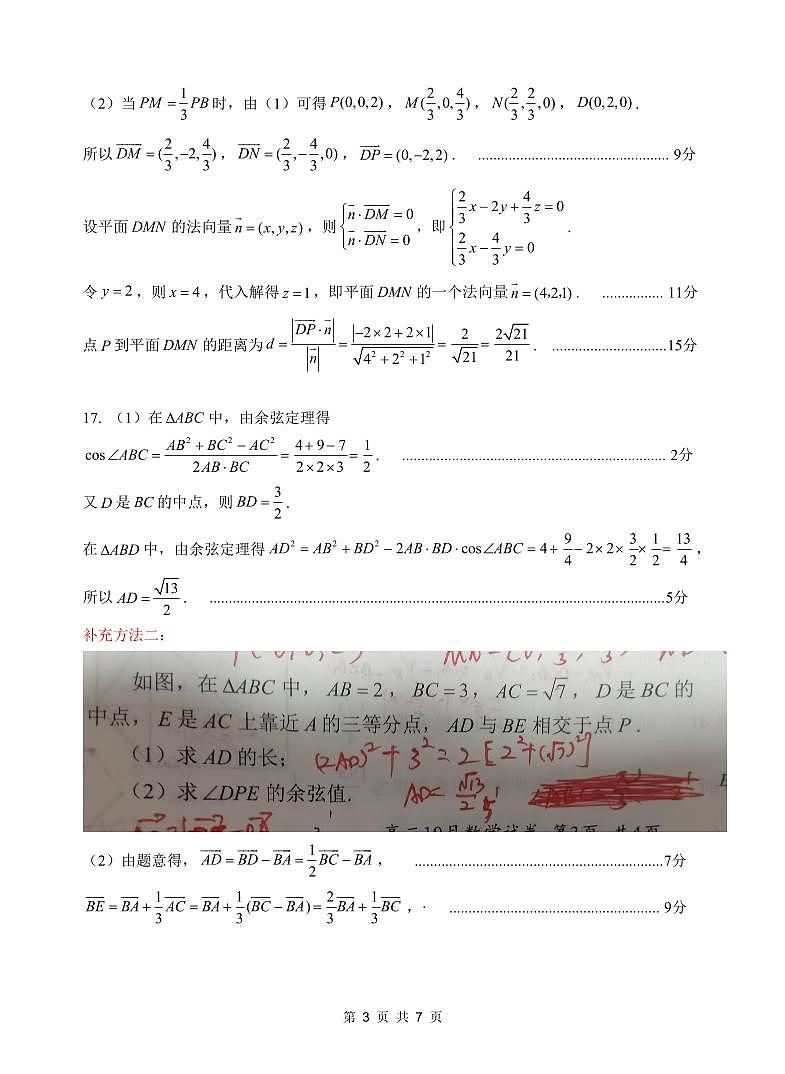 （2）当 PM = 1/3 PB 时，由（1）可得 P(0,0,2)，M(2/3,0,4/3)，N(2/3,2/3,0)，D(0,2,0)．
所以 DM = (2/3,−2,4/3)，DN = (2/3,−4/3,0)，DP = (0,−2,2)． .................................................. 9分
设平面 DMN 的法向量 n = (x, y, z)，则 { n·DM = 0, n·DN = 0，即 { 2/3 x − 2y + 4/3 z = 0, 2/3 x − 4/3 y = 0．
令 y = 2，则 x = 4，代入解得 z = 1，即平面 DMN 的一个法向量 n = (4,2,1)． ................ 11分
点 P 到平面 DMN 的距离为 d = |DP·n|/|n| = |−2×2+2×1|/√(4²+2²+1²) = 2/√21 = 2√21/21． ..............................15分
17. （1）在 ΔABC 中，由余弦定理得
cos∠ABC = (AB² + BC² − AC²)/(2AB·BC) = (4+9−7)/(2×2×3) = 1/2． .................................................................... 2分
又 D 是 BC 的中点，则 BD = 3/2．
在 ΔABD 中，由余弦定理得 AD² = AB² + BD² − 2AB·BD·cos∠ABC = 4 + 9/4 − 2×2×3/2×1/2 = 13/4，
所以 AD = √13/2． .......................................................................................................................5分
补充方法二：
如图，在 ΔABC 中，AB = 2，BC = 3，AC = √7，D 是 BC 的
中点，E 是 AC 上靠近 A 的三等分点，AD 与 BE 相交于点 P．
（1）求 AD 的长； (2AD)² + 3² = 2[2²+(√7)²]
（2）求 ∠DPE 的余弦值． AD = √13/2
（2）由题意得，AD = BD − BA = 1/2 BC − BA， .................................................................7分
BE = BA + 1/3 AC = BA + 1/3(BC − BA) = 2/3 BA + 1/3 BC，· ....................................................... 9分
第 3 页 共 7 页